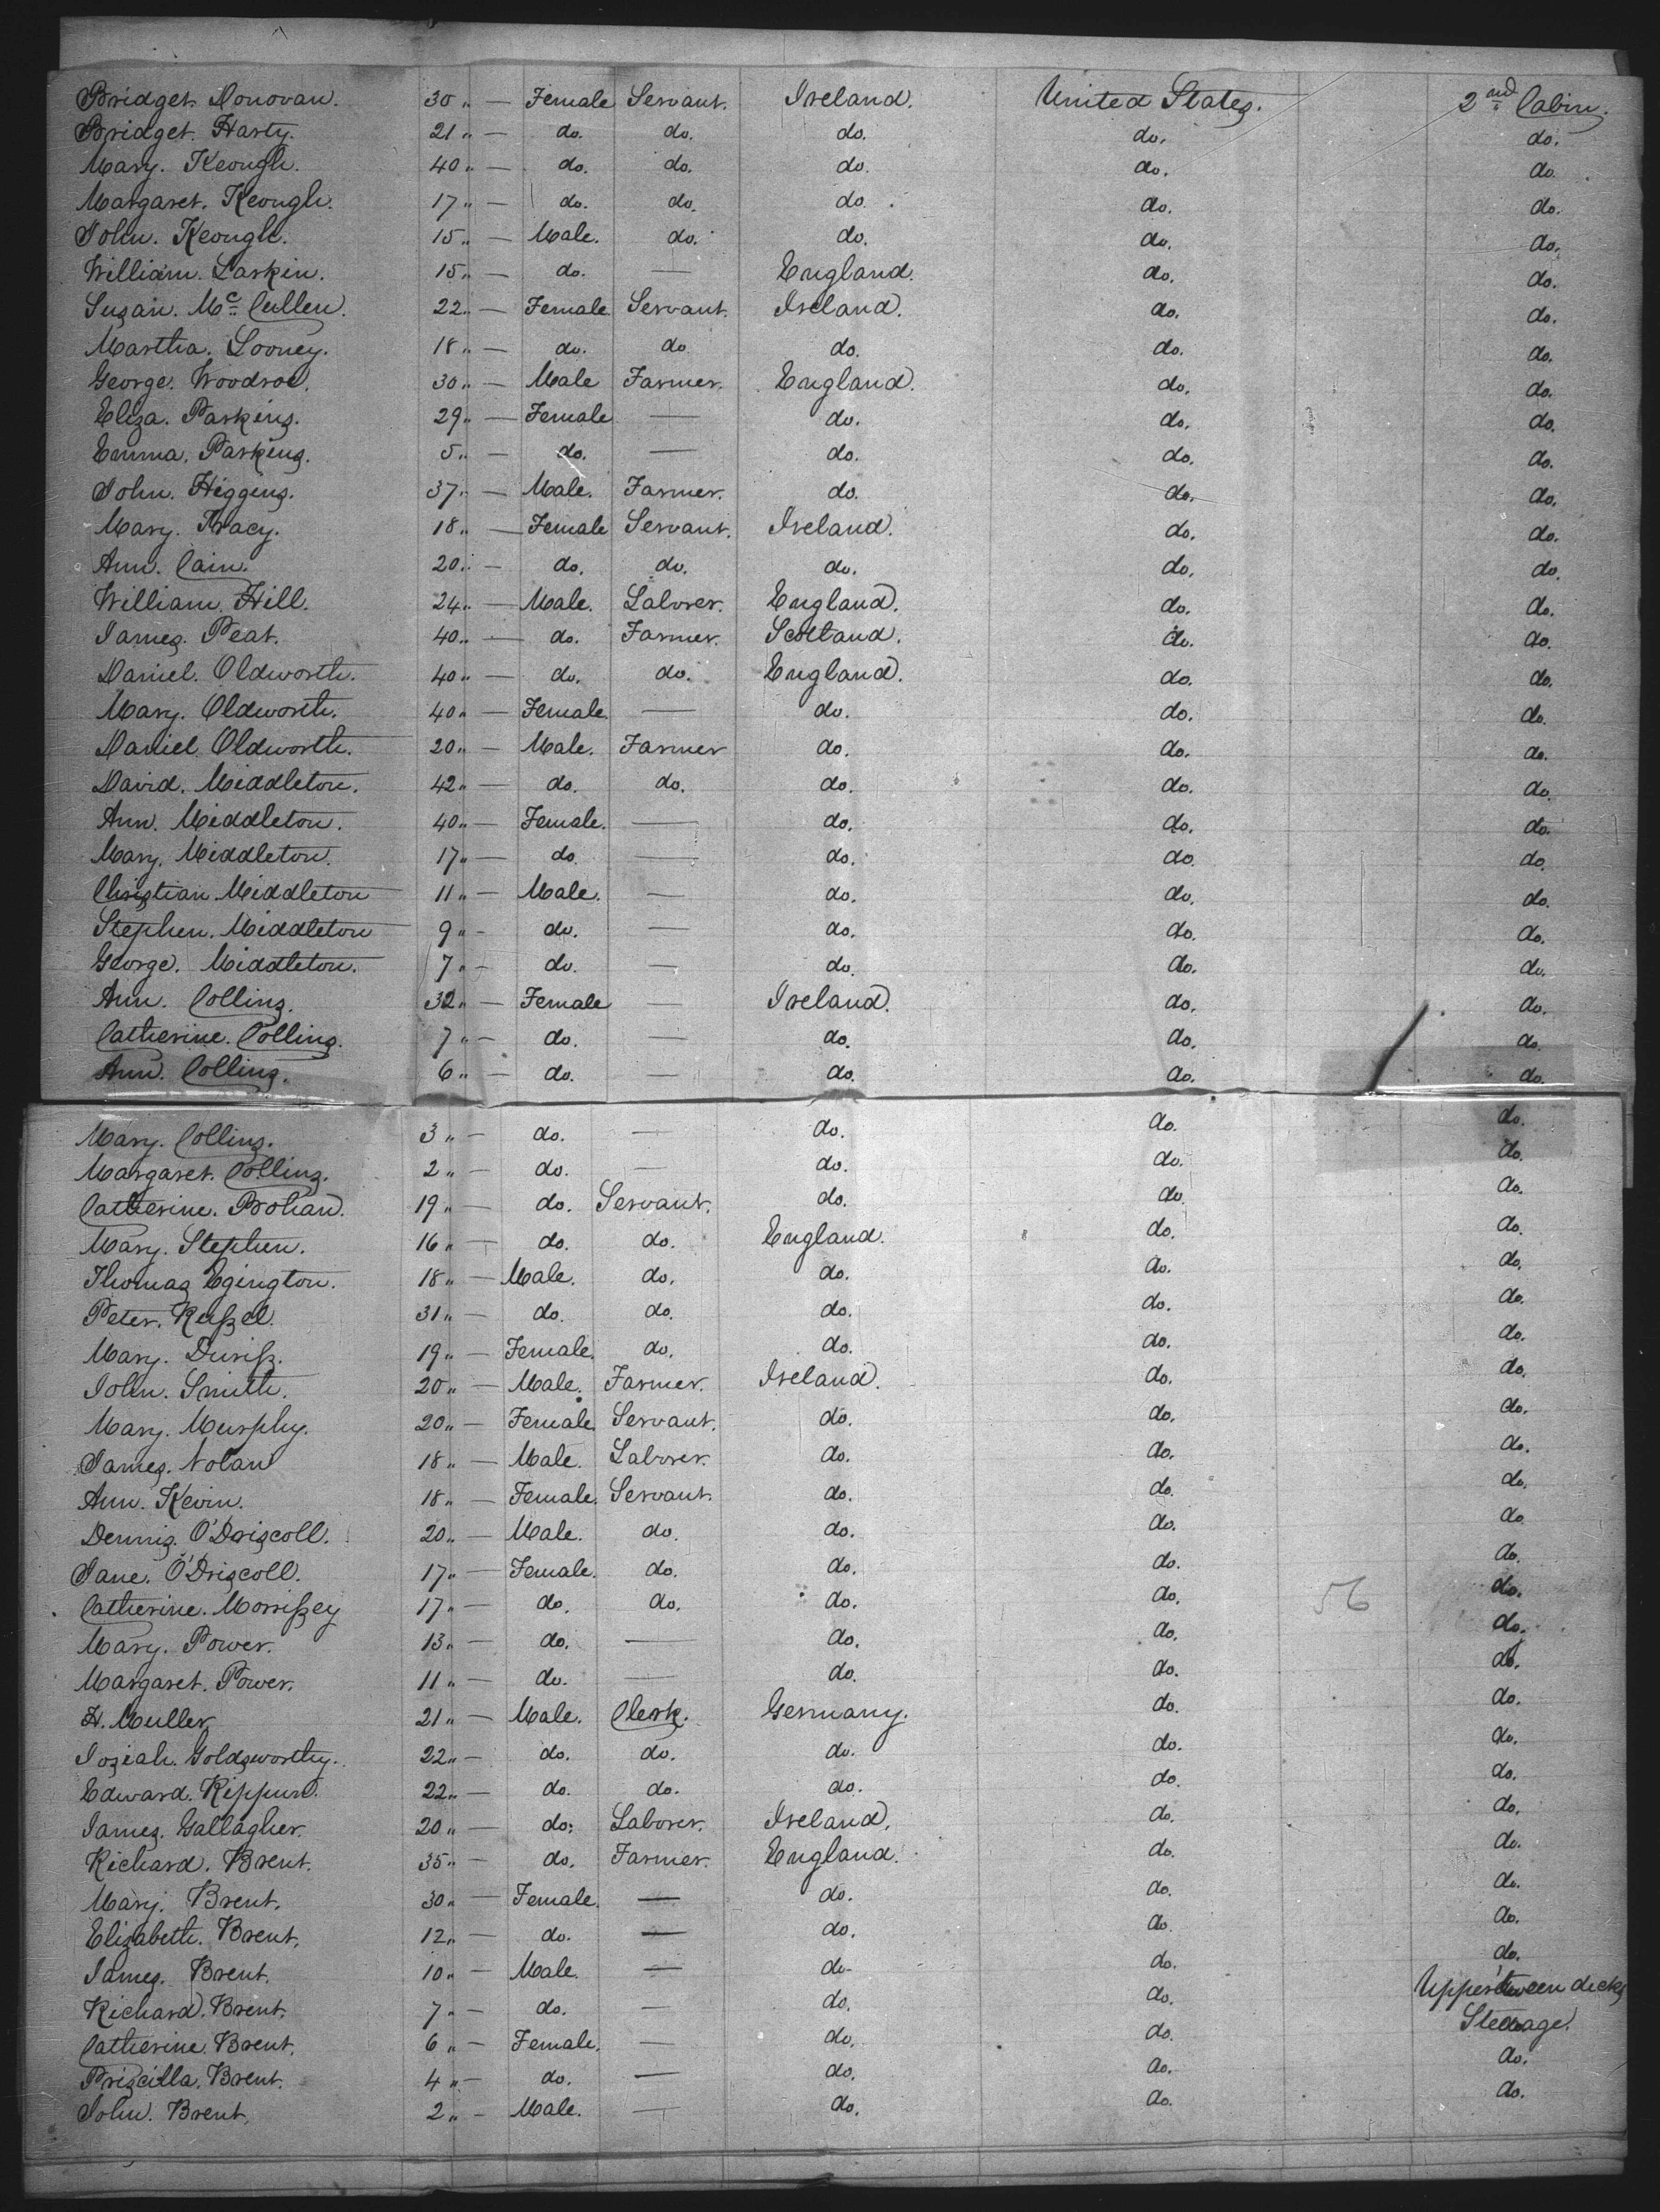 Bridget. Donovan. 30 " — Female Servant. Ireland. United States. 2nd Cabin.
Bridget. Harty. 21 " — do. do. do. do. do.
Mary. Keough. 40 " — do. do. do. do. do.
Margaret. Keough. 17 " — do. do. do. do. do.
John. Keough. 15 " — Male. do. do. do. do.
William. Larkin. 15 " — do. — England. do. do.
Susan. Mc Cullen. 22 " — Female Servant. Ireland. do. do.
Martha. Looney. 18 " — do. do do. do. do.
George. Woodroe. 30 " — Male Farmer. England. do. do.
Eliza. Parkins. 29 " — Female — do. do. do.
Emma. Parkins. 5 " — do. — do. do. do.
John. Higgins. 37 " — Male. Farmer. do. do. do.
Mary. Tracy. 18 " — Female Servant. Ireland. do. do.
Ann. Cain. 20 " — do. do. do. do. do.
William. Hill. 24 " — Male. Laborer. England. do. do.
James. Peat. 40 " — do. Farmer. Scotland. do. do.
Daniel. Oldworth. 40 " — do. do. England. do. do.
Mary. Oldworth. 40 " — Female. — do. do. do.
Daniel. Oldworth. 20 " — Male. Farmer do. do. do.
David. Middleton. 42 " — do. do. do. do. do.
Ann. Middleton. 40 " — Female. — do. do. do.
Mary. Middleton. 17 " — do. — do. do. do.
Christian Middleton 11 " — Male. — do. do. do.
Stephen. Middleton 9 " - do. — do. do. do.
George. Middleton. 7 " - do. — do. do. do.
Ann. Collins. 32 " — Female — Ireland. do. do.
Catherine. Collins. 7 " - do. — do. do. do.
Ann. Collins. 6 " — do. — do. do. do.
Mary. Collins. 3 " — do. — do. do. do.
Margaret. Collins. 2 " — do. — do. do. do.
Catherine. Brohan. 19 " — do. Servant. do. do. do.
Mary. Stephen. 16 " — do. do. England. do. do.
Thomas Egington. 18 " — Male. do. do. do. do.
Peter. Kußel. 31 " — do. do. do. do. do.
Mary. Duriß. 19 " — Female. do. do. do. do.
John. Smith. 20 " — Male. Farmer. Ireland. do. do.
Mary. Murphy. 20 " — Female Servant. do. do. do.
James. Nolan 18 " — Male. Laborer. do. do. do.
Ann. Kevin. 18 " — Female. Servant. do. do. do.
Dennis. O'Driscoll. 20 " — Male. do. do. do. do
Jane. O'Driscoll. 17 " — Female. do. do. do. do.
Catherine. Morrißey 17 " — do. do. do. do. 56 do.
Mary. Power. 13 " — do. — do. do. do.
Margaret. Power. 11 " — do. — do. do. do.
H. Muller 21 " — Male. Clerk. Germany. do. do.
Josiah. Goldsworthy. 22 " — do. do. do. do. do.
Edward. Kippurd. 22 " — do. do. do. do. do.
James. Gallagher. 20 " — do. Laborer. Ireland. do. do.
Richard. Brent. 35 " — do. Farmer. England. do. do.
Mary. Brent. 30 " — Female. — do. do. do.
Elizabeth. Brent. 12 " — do. — do. do. do.
James. Brent. 10 " — Male. — do- do. do.
Richard. Brent. 7 " — do. — do. do. Upper tween decks
Catherine. Brent. 6 " — Female. — do. do. Steerage.
Priscilla. Brent. 4 " — do. — do. do. do.
John. Brent. 2 " — Male. — do. do. do.